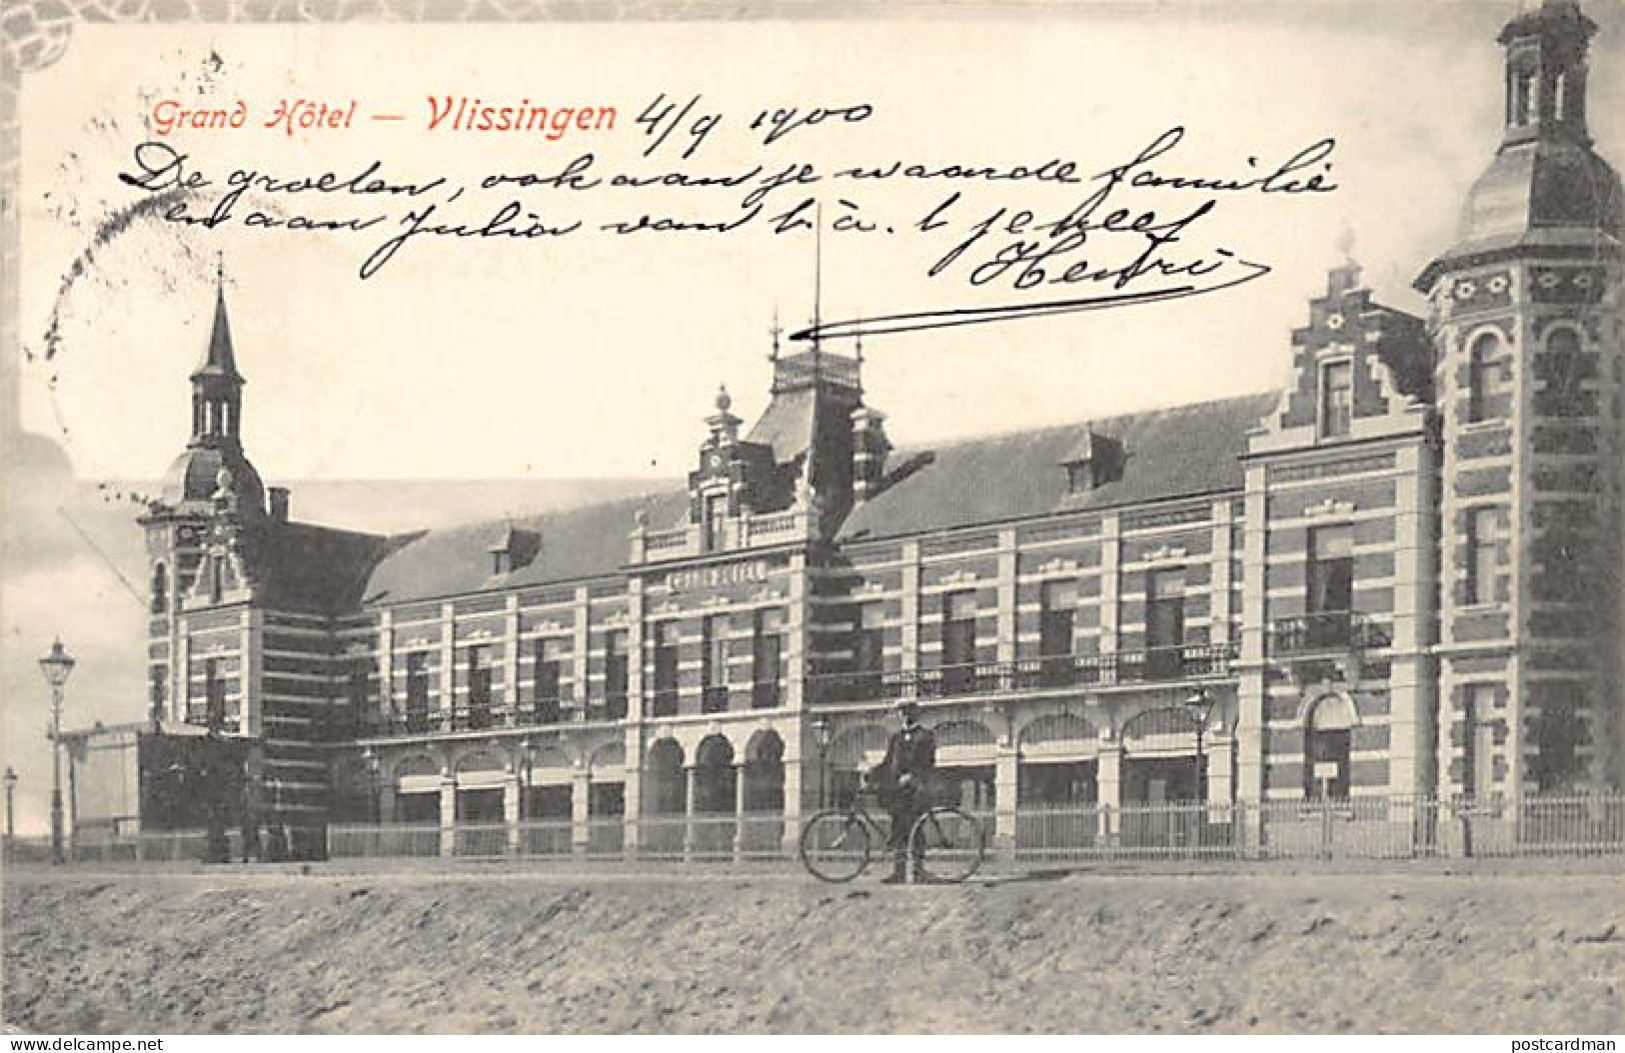 Grand Hôtel — Vlissingen 4/9 1900
De groeten, ook aan je waarde familie
en aan Julia van h. à. t je neef
Henri
GRAND HOTEL
www.delcampe.net
postcardman